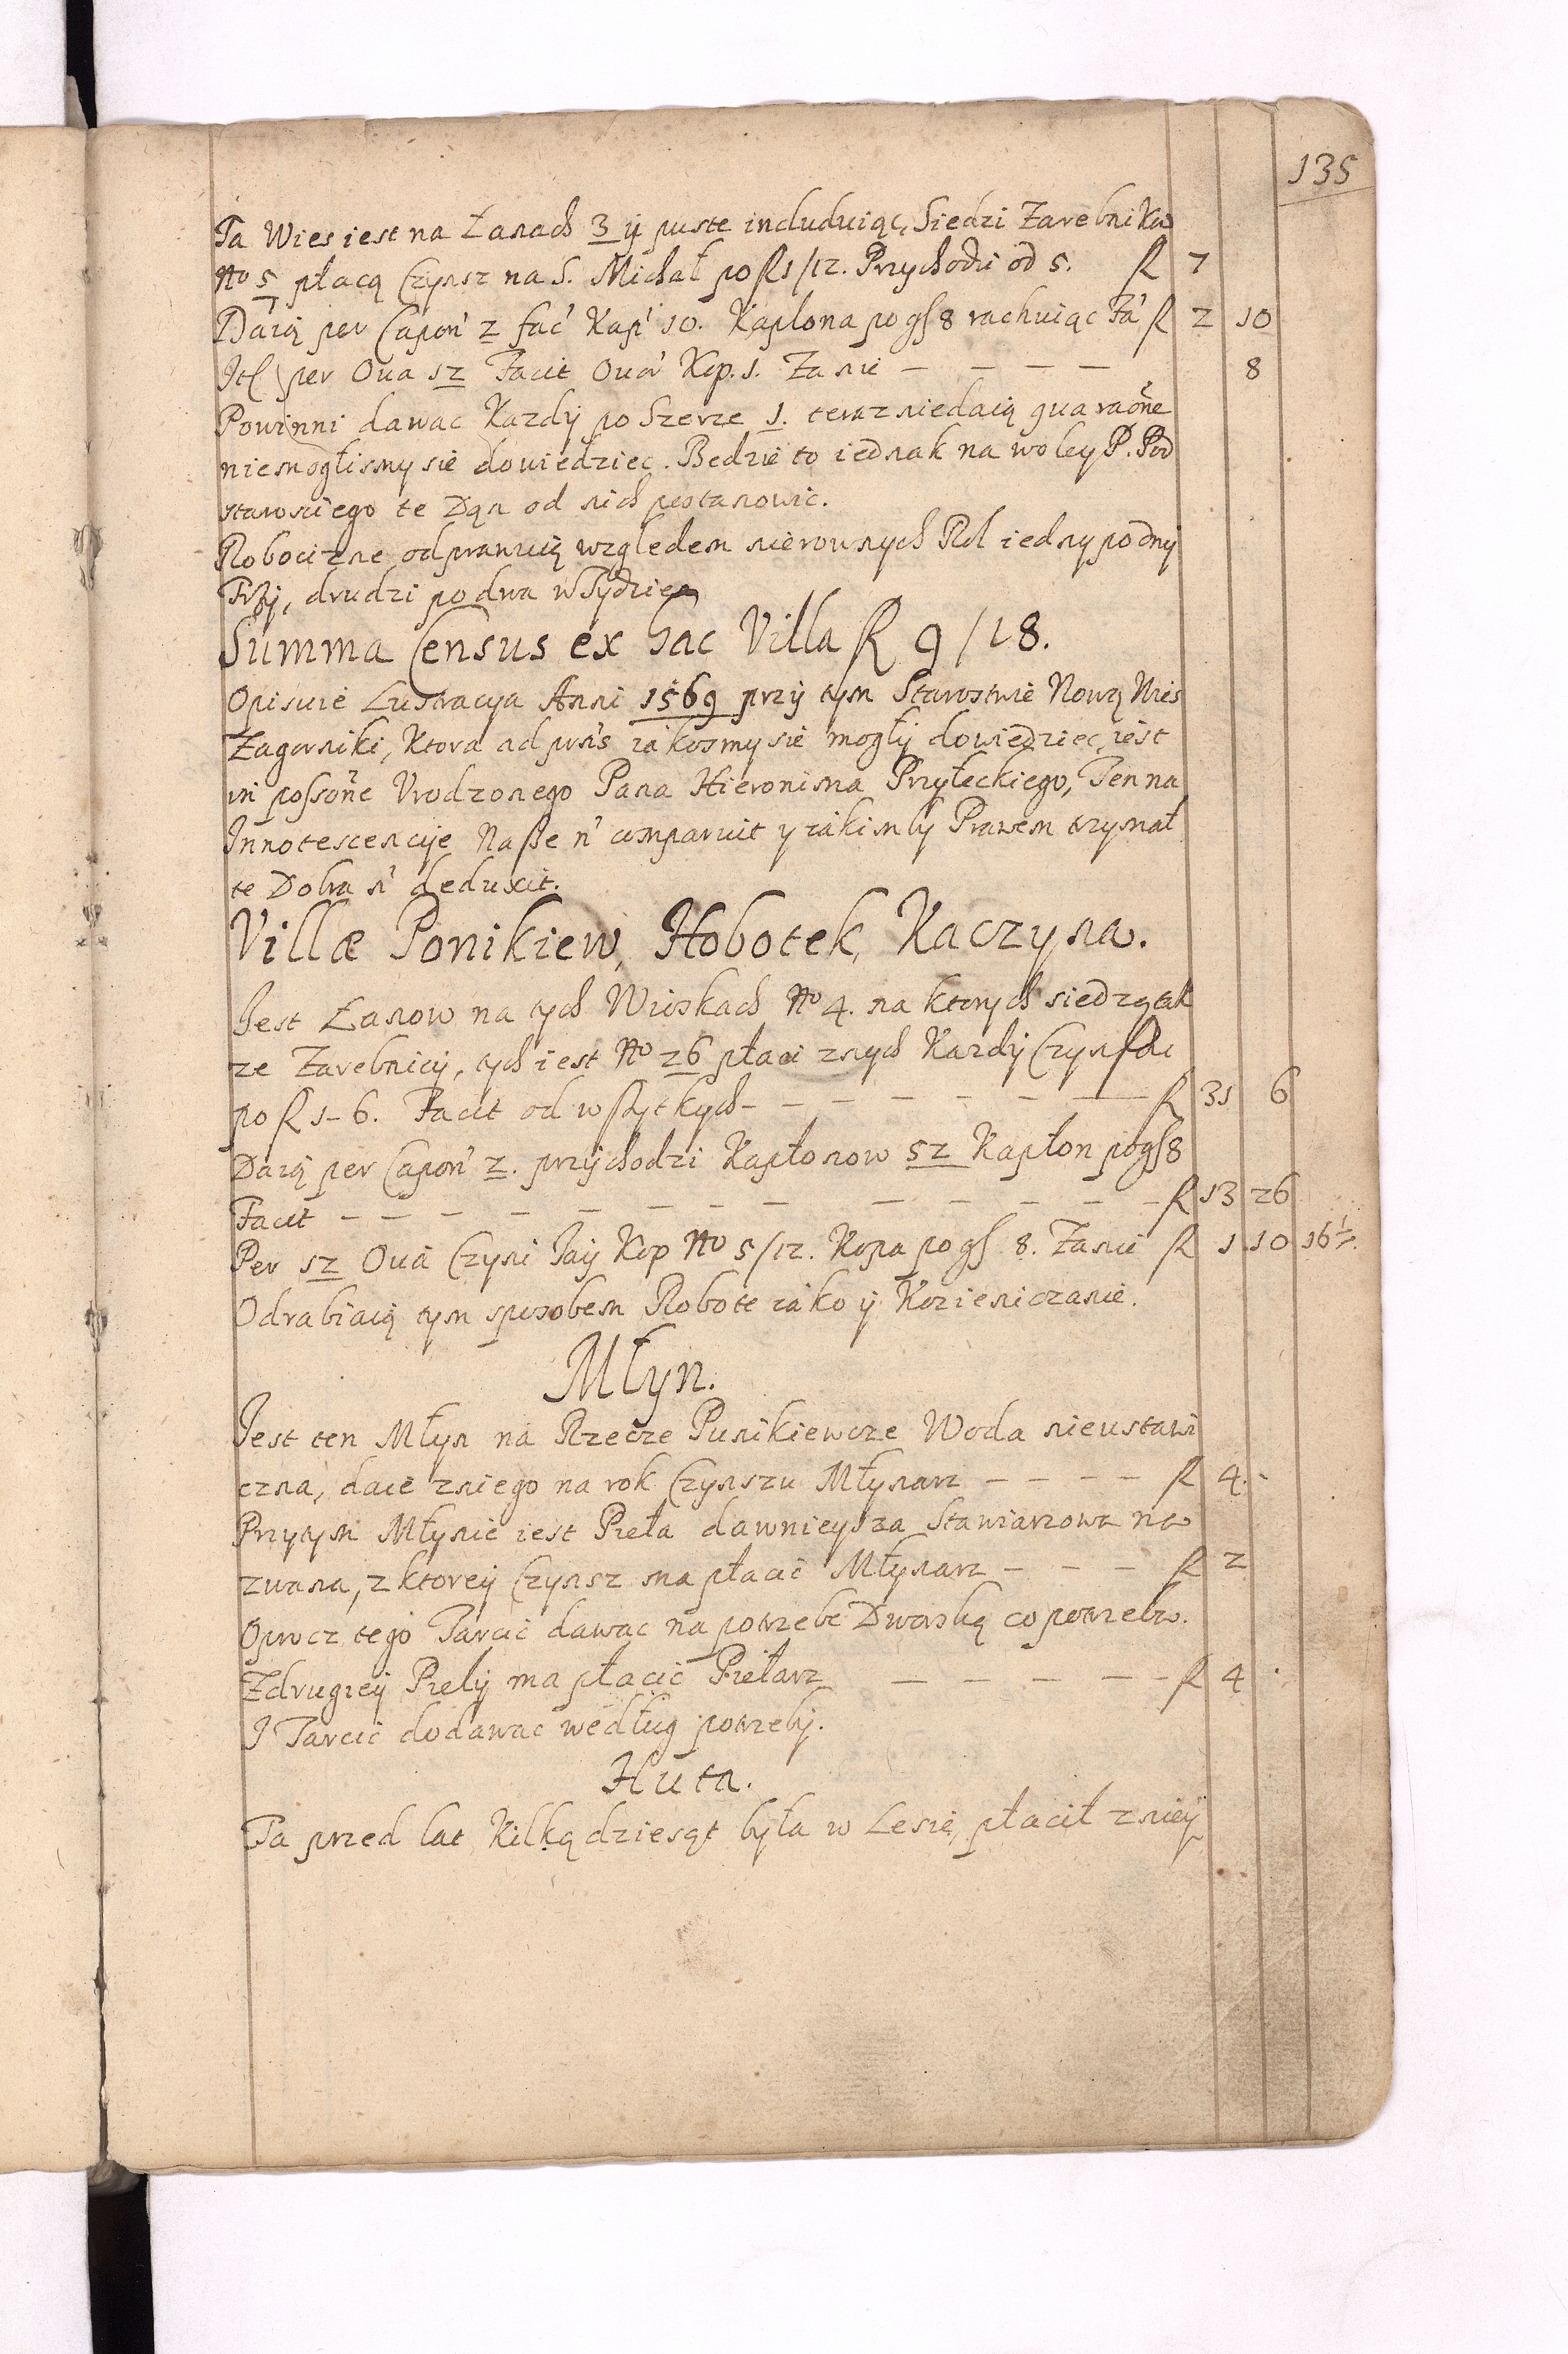 135
Ta Wies iest na Łanach 3 ÿ puste includuiąc, Siedzi Zarebnikow
No 5 płacą Czynsz na S. Michał po R 1/12. Przychodzi od 5. R 7
Daią per Capon' 2 fac' Kap' 10. Kapłona po gſ 8 rachuiąc Fa' R 2 10
Itſ per Oua 12 Facit Ouor' Kop. 1. Za nie — — — — 8
Powinni dawac Kazdÿ po Szerze 1. teraz niedaią qua raōne
niemoglismy sie dowiedziec. Bedzie to iednak na woley P. Pod
starosciego te Dan od nich postanowic.
Robocizne odprawuią względem nierownych Rol iedny po dny
Trzÿ, drudzi po dwa w Tydzien
Summa Census ex hac Villa R 9/18.
Opisuie Lustracya Anni 1569 przÿ tym Starostwie Nową Wies
Zagorniki, Ktora ad prn's iakosmy sie moglÿ dowiedziec, iest
in possōne Urodzonego Pana Hieronima Przyłeckiego, Ten na
Innotescencÿe Naße n' comparuit y iakimby Prawem trzymał
te Dobra n' deduxit.
Villæ Ponikiew, Hobotek, Kaczyna.
Jest Łanow na tych Wioskach No 4. na ktorych siedzą tak
ze Zarebnicÿ, tych iest No 26 płaci znych Kazdÿ Czynszu
po R 1–6. Facit od wszytkych — — — — — — R 31 6
Daią per Capon' 2. przÿchodzi Kapłonow 52 Kapłon po gſ 8
Facit — — — — — — — — — — — — R 13 26
Per 12 Oua Czyni Jaÿ Kop No 5/12. Kopa po gſ 8. Za nie R 1 10 16½.
Odrabiaią tym sposobem Robote iako ÿ Kozieniczanie.
Młyn.
Jest ten Młyn na Rzecze Punikiewcze Woda nieustawi
czna, daie zniego na rok Czynszu Młynarz — — — — R 4. -
Przytym Młynie iest Pieła dawnieysza Stawiarzowa na
zwana, z ktoreÿ Czynsz ma płacic Młynarz — — — R 2
Oprocz tego Tarcic dawac na potrzebe Dworską co potrzeba.
Zdrugieÿ Pielÿ ma płacic Pielarz — — — — — R 4 .
I Tarcic dodawac według potrzebÿ.
Huta.
Ta przed lat Kilką dziesąt była w Lesie, płacił znieÿ